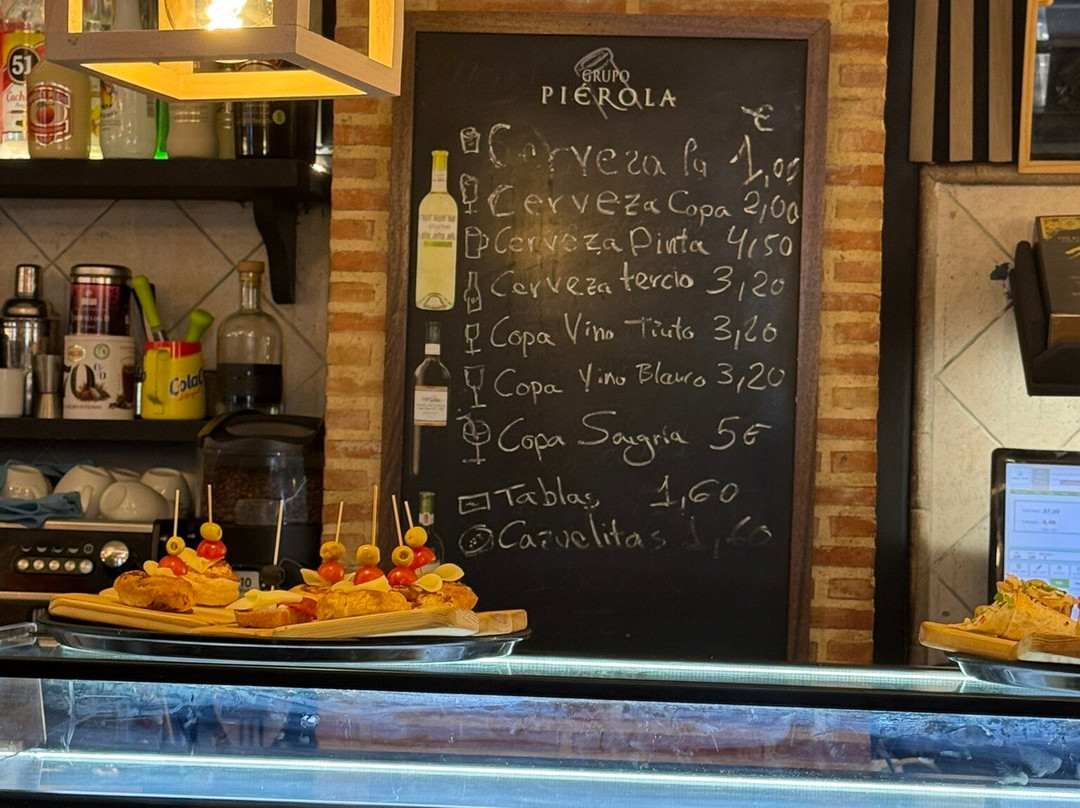 GRUPO
PIÉROLA
€
Cerveza 1,00
Cerveza Copa 2,00
Cerveza Pinta 4,50
Cerveza tercio 3,20
Copa Vino Tinto 3,20
Copa Vino Blanco 3,20
Copa Sangria 5€
Tablas 1,60
Cazuelitas 1,60
51
Cola
0%
10